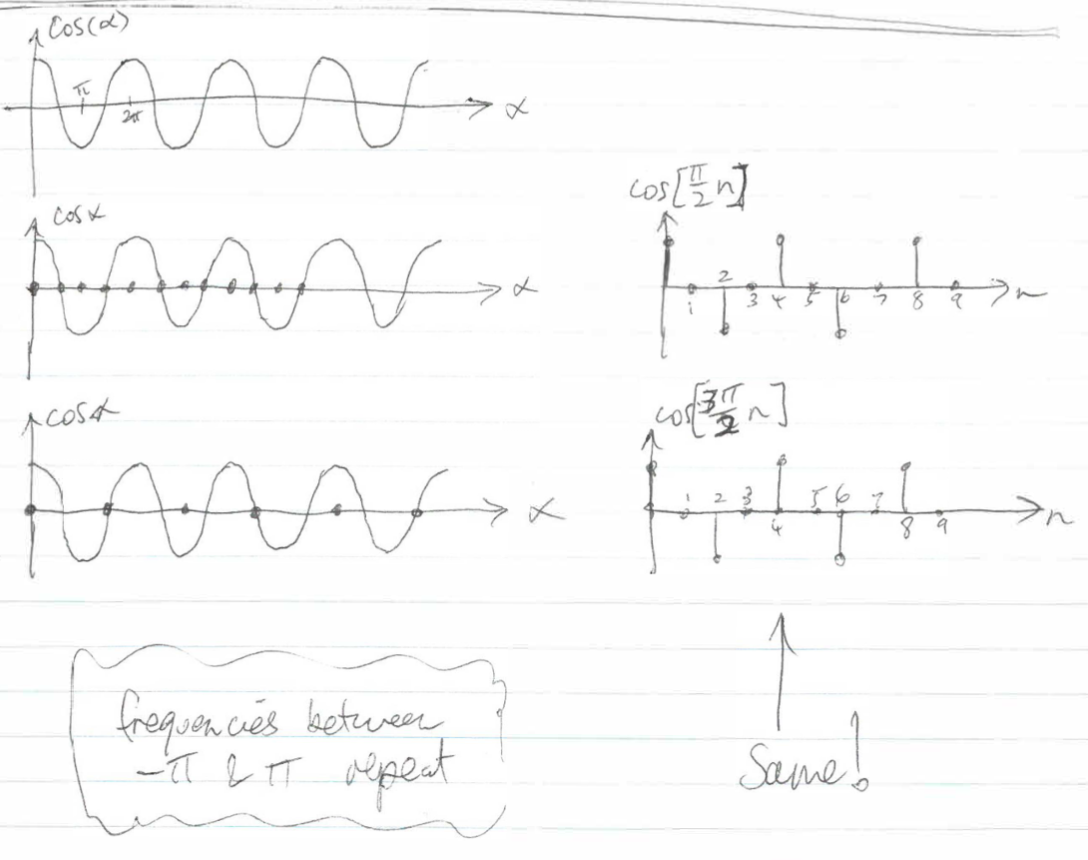 cos(α)
π
2π
α
cos[π/2 n]
cosα
α
2
1 3 4 5 6 7 8 9
n
cosα
α
cos[3π/2 n]
1 2 3 5 6 7
4 8 9
n
frequencies between
-π & π repeat
Same!